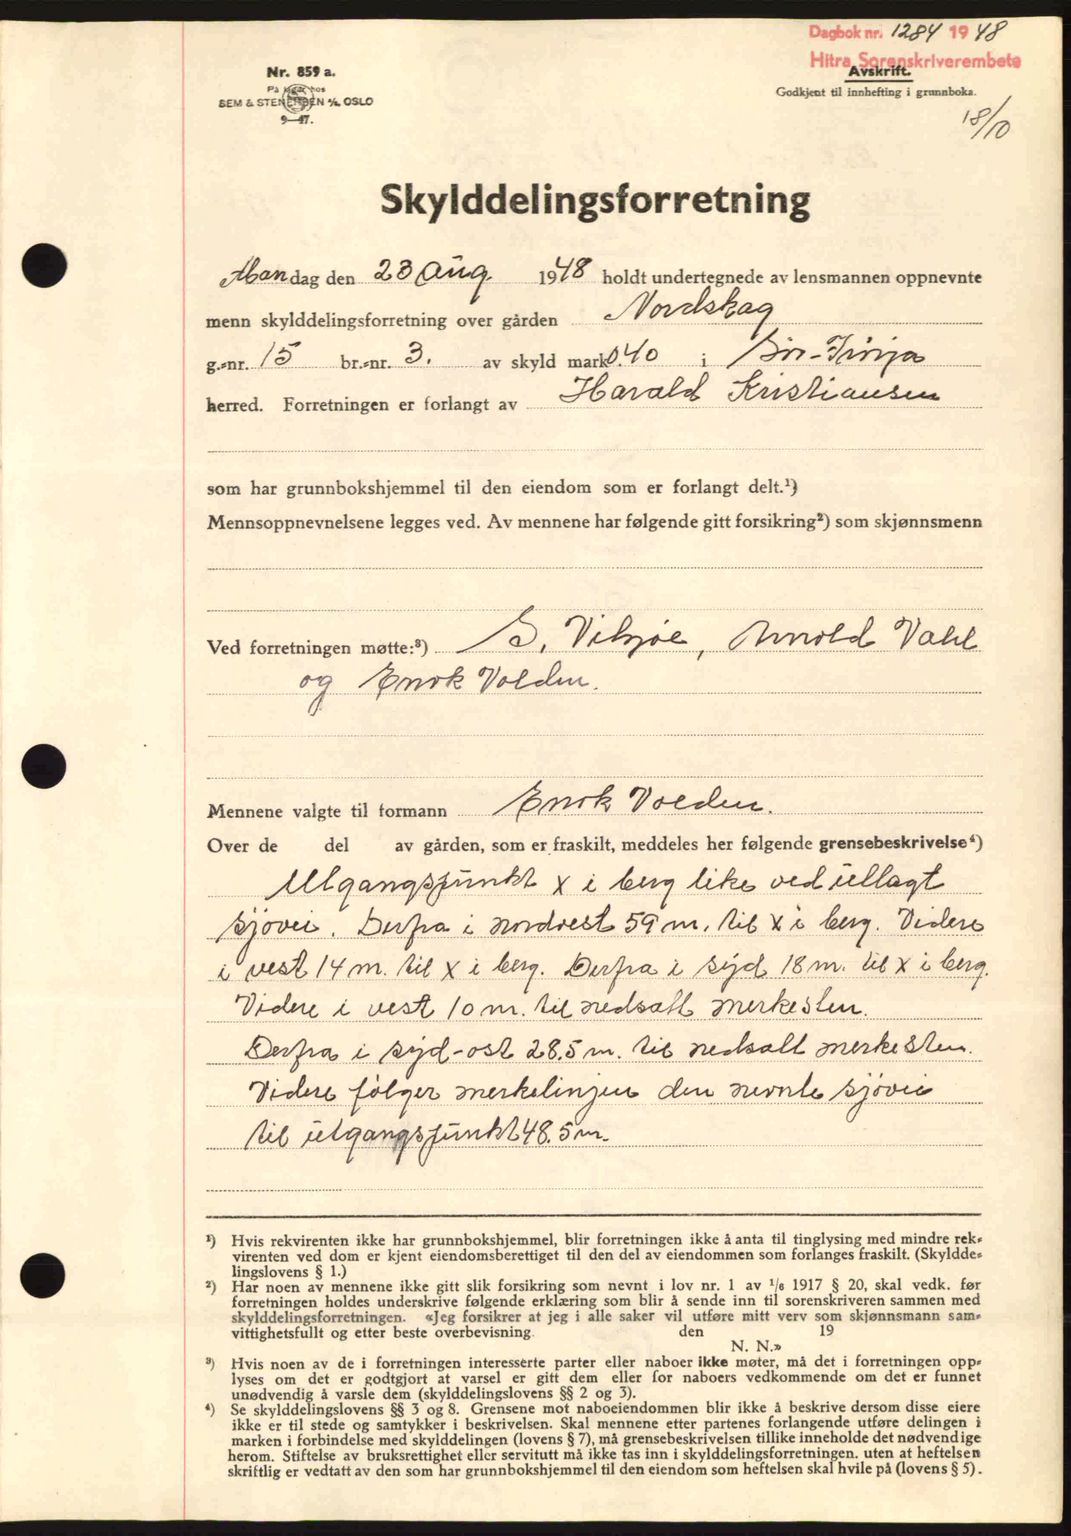 Dagbok nr. 1284 1948
Hitra Sorenskriverembete
Nr. 859 a.
På lager hos
SEM & STENERSEN A/S, OSLO
9—47.
Avskrift.
Godkjent til innhefting i grunnboka.
18/10
Skylddelingsforretning
Mandag den 23 aug. 1948 holdt undertegnede av lensmannen oppnevnte
menn skylddelingsforretning over gården Nordskag
g.-nr. 15 br.-nr. 3. av skyld mark 0.40 i Sør-Frøya
herred. Forretningen er forlangt av Harald Kristiansen
som har grunnbokshjemmel til den eiendom som er forlangt delt.¹)
Mennsoppnevnelsene legges ved. Av mennene har følgende gitt forsikring²) som skjønnsmenn
Ved forretningen møtte:³) S. Vikjøe, Arnold Vahl
og Enok Volden.
Mennene valgte til formann Enok Volden.
Over de del av gården, som er fraskilt, meddeles her følgende grensebeskrivelse⁴)
Utgangspunkt x i berg like ved utlagt
sjøvei. Derfra i nordvest 59 m. til x i berg. Videre
i vest 14 m. til x i berg. Derfra i syd 18 m. til x i berg.
Videre i vest 10 m. til nedsatt merkesten.
Derfra i syd-ost 28.5 m. til nedsatt merkesten.
Videre følger merkelinjen den nevnte sjøvei
til utgangspunkt 48.5 m.
¹) Hvis rekvirenten ikke har grunnbokshjemmel, blir forretningen ikke å anta til tinglysing med mindre rek-
virenten ved dom er kjent eiendomsberettiget til den del av eiendommen som forlanges fraskilt. (Skyldde-
lingslovens § 1.)
²) Har noen av mennene ikke gitt slik forsikring som nevnt i lov nr. 1 av 1/6 1917 § 20, skal vedk. før
forretningen holdes underskrive følgende erklæring som blir å sende inn til sorenskriveren sammen med
skylddelingsforretningen. «Jeg forsikrer at jeg i alle saker vil utføre mitt verv som skjønnsmann sam-
vittighetsfullt og etter beste overbevisning. den 19
N. N.»
³) Hvis noen av de i forretningen interesserte parter eller naboer ikke møter, må det i forretningen opp-
lyses om det er godtgjort at varsel er gitt dem eller for naboers vedkommende om det er funnet
unødvendig å varsle dem (skylddelingslovens §§ 2 og 3).
⁴) Se skylddelingslovens §§ 3 og 8. Grensene mot naboeiendommen blir ikke å beskrive dersom disse eiere
ikke er til stede og samtykker i beskrivelsen. Skal mennene etter partenes forlangende utføre delingen i
marken i forbindelse med skylddelingen (lovens § 7), må grensebeskrivelsen tillike inneholde det nødvendige
herom. Stiftelse av bruksrettighet eller servitutt må ikke tas inn i skylddelingsforretningen, uten at heftelsen
skriftlig er vedtatt av den som har grunnbokshjemmel til den eiendom som heftelsen skal hvile på (lovens § 5).